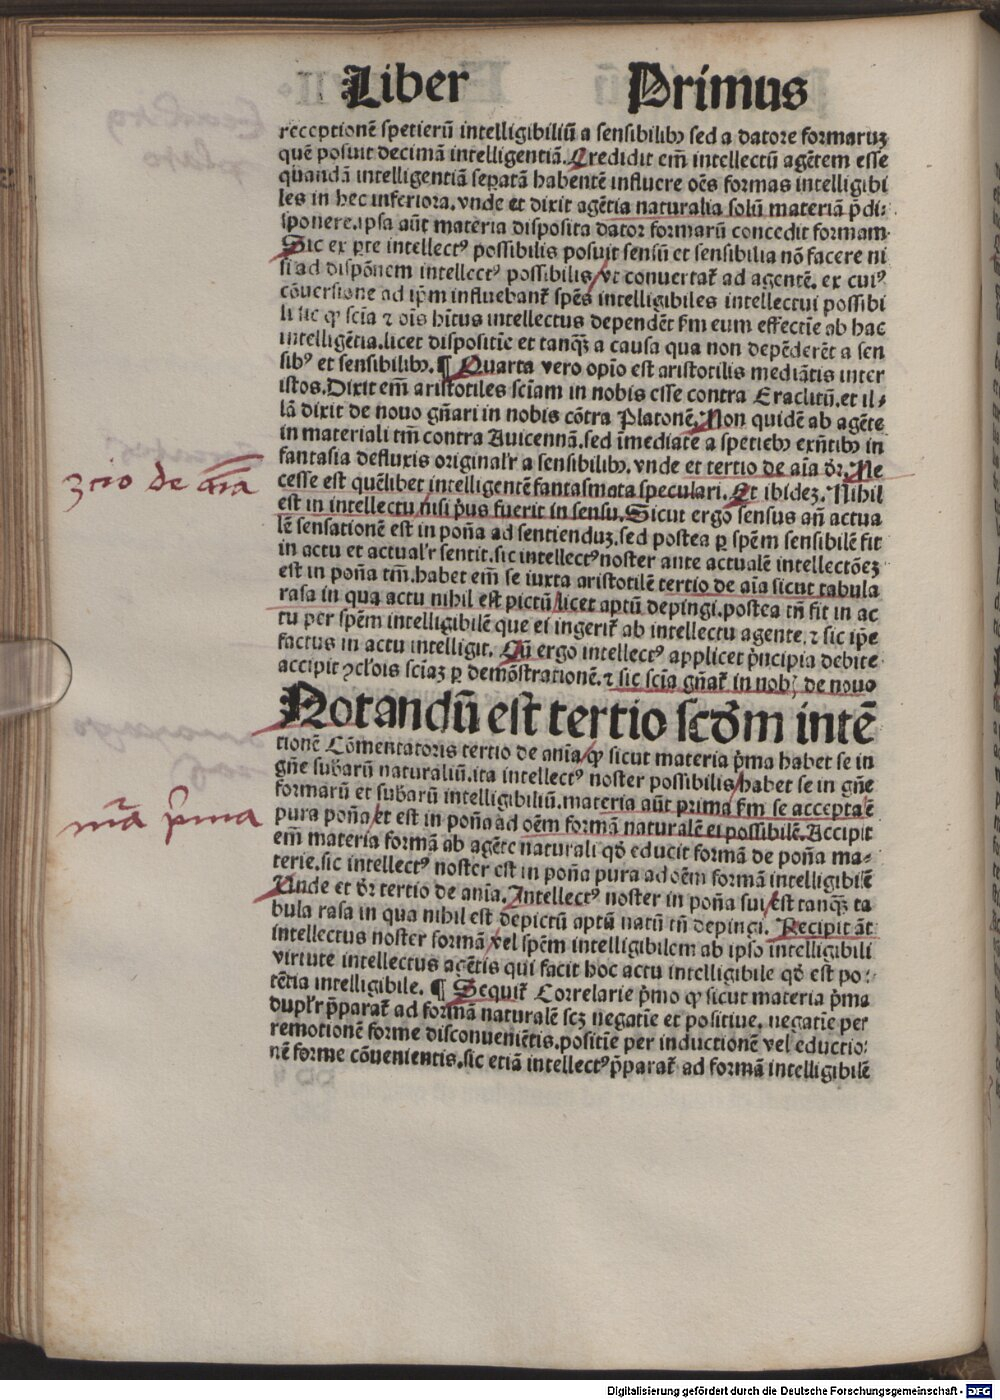 Liber Primus
receptionē spetierū intelligibiliū a sensibilibꝫ sed a datore formarūꝫ
quē posuit decimā intelligentiā. Credidit em̄ intellectū agētem esse
quandā intelligentiā sepatā habentē influere oēs formas intelligibi
les in hec inferiora. vnde et dixit agētia naturalia solū materiā p̄di⸗
sponere. ipsa aūt materia disposita dator formarū concedit formam
Sic ex ꝑte intellectꝰ possibilis posuit sensū et sensibilia nō facere ni
si ad dispōnem intellectꝰ possibilis/vt conuertat̄ ad agentē. ex cuiꝰ
cōuersione ad ip̄m influebant̄ spēs intelligibiles intellectui possibi
li sic ꝙ scīa ⁊ oīs hītus intellectus dependēt f̄m eum effectīe ab hac
intelligētia. licet dispositīe et tanqꝫ a causa qua non depēderēt a sen
sibꝰ et sensibilibꝫ. ¶ Quarta vero opīo est aristotilis mediātis inter
istos. Dixit em̄ aristotiles scīam in nobis esse contra Eraclitū. et il⸗
lā dixit de nouo gn̄ari in nobis cōtra Platonē. Non quidē ab agēte
in materiali tm̄ contra Auicennā. sed īmediate a spetiebꝫ exn̄tibꝫ in
fantasia defluxis originalr̄ a sensibilibꝫ. vnde et tertio de aīa dr̄. Ne
cesse est quēlibet intelligentē fantasmata speculari. Et ibidez. Nihil
est in intellectu/nisi p̄us fuerit in sensu. Sicut ergo sensus an̄ actua
lē sensationē est in poña ad sentienduꝫ. sed postea ꝑ spēm sensibilē fit
in actu et actualr̄ sentit. sic intellectꝰ noster ante actualē intellectōeꝫ
est in poñа tm̄. habet em̄ se iuxta aristotilē tertio de aīa sicut tabula
rasa in qua actu nihil est pictū/licet aptū depingi. postea tn̄ fit in ac
tu per spēm intelligibilē que ei ingerit̄ ab intellectu agente. ⁊ sic ip̄e
factus in actu intelligit. Cū ergo intellectꝰ applicet p̄ncipia debite
accipit ꝯclōis scīaꝫ ꝑ demōstrationē. ⁊ sic scīa gn̄at̄ in nobꝫ de nouo
Notandū est tertio scd̄m intē
tionē Cōmentatoris tertio de anīa/ꝙ sicut materia p̄ma habet se in
gn̄e subarū naturaliū. ita intellectꝰ noster possibilis/habet se in gn̄e
formarū et subarū intelligibiliū. materia aūt prima f̄m se accepta/ē
pura poña/et est in poña ad oēm formā naturalē ei possibilē. Accipit
em̄ materia formā ab agēte naturali qd̄ educit formā de poña ma⸗
terie. sic intellectꝰ noster est in poña pura ad oēm formā intelligibilē
Unde et dr̄ tertio de anīa. Intellectꝰ noster in poña sui/est tanqꝫ ta
bula rasa in qua nihil est depictū aptū natū tn̄ depingi. Recipit āt
intellectus noster formā vel spēm intelligibilem ab ipso intelligibili
virtute intellectus agētis qui facit hoc actu intelligibile qd̄ est po⸗
tētia intelligibile. ¶ Sequit̄ Correlarie p̄mo ꝙ sicut materia p̄ma
duplr̄ p̄parat̄ ad formā naturalē scꝫ negatīe et positiue. negatīe per
remotionē forme disconueniētis. positīe per inductionē vel eductio⸗
nē forme cōuenientis. sic etiā intellectꝰ p̄parat̄ ad formā intelligibilē
3cio de aīa
mā p̄ma
Digitalisierung gefördert durch die Deutsche Forschungsgemeinschaft - DFG